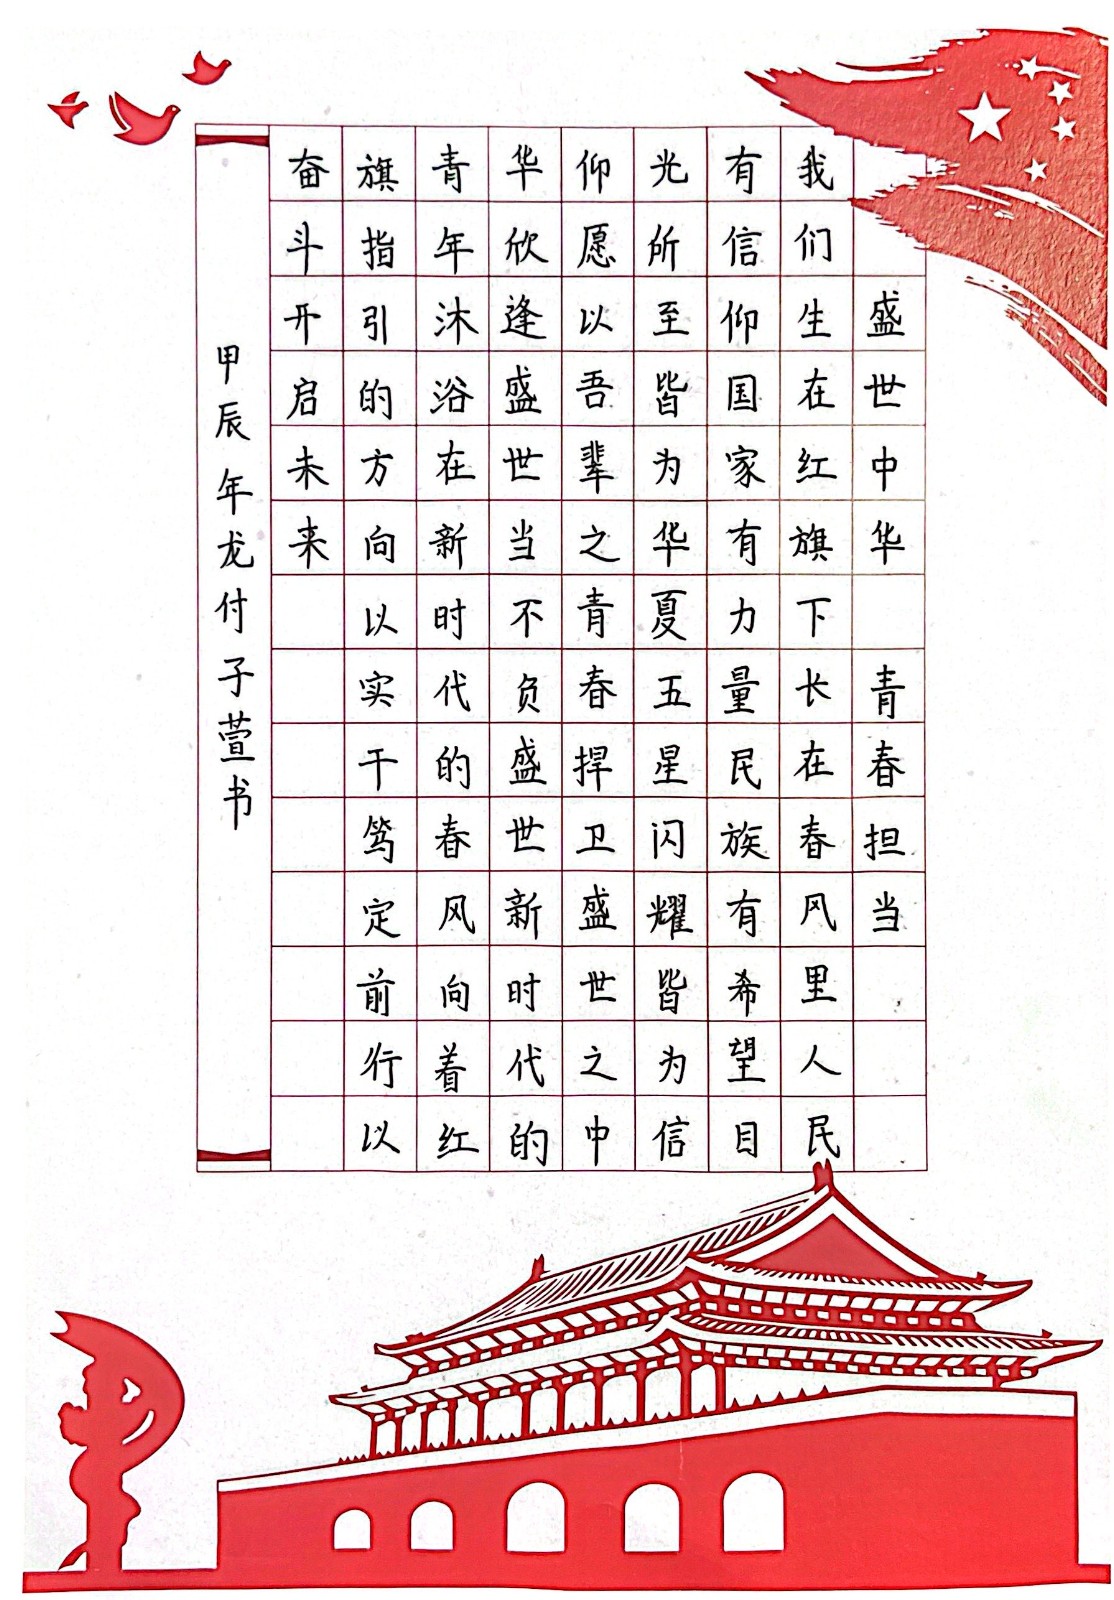 盛世中华 青春担当
我们生在红旗下长在春风里人民
有信仰国家有力量民族有希望目
光所至皆为华夏五星闪耀皆为信
仰愿以吾辈之青春捍卫盛世之中
华欣逢盛世当不负盛世新时代的
青年沐浴在新时代的春风向着红
旗指引的方向以实干笃定前行以
奋斗开启未来
甲辰年龙付子萱书